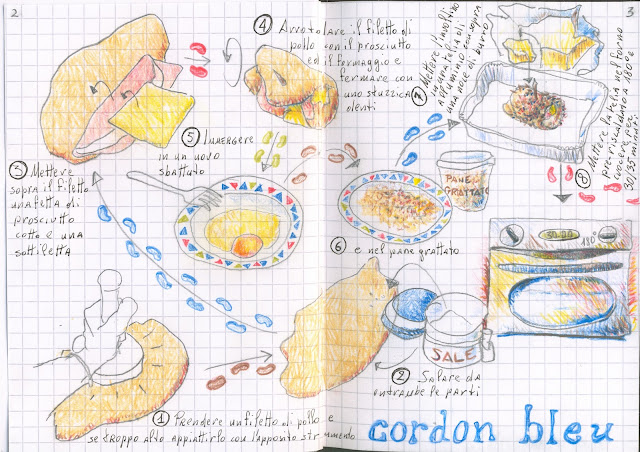 2
3
④ Arrotolare il filetto di
pollo con il prosciutto
ed il formaggio e
fermare con
uno stuzzica
denti
⑦ Mettere l'involtino
in una teglia di
alluminio con sopra
una noce di burro
⑤ Immergere
in un uovo
sbattuto
③ Mettere
sopra il filetto
una fetta di
prosciutto
cotto e una
sottiletta
PANE
GRATTATO
⑧ Mettere la teglia nel forno
pre-riscaldato a 180°
cuocere per
30/35 minuti
⑥ e nel pane grattato
30:00
180°
SALE
② Salare da
entrambe le parti
① Prendere un filetto di pollo e
se troppo alto appiattirlo con l'apposito strumento
cordon bleu